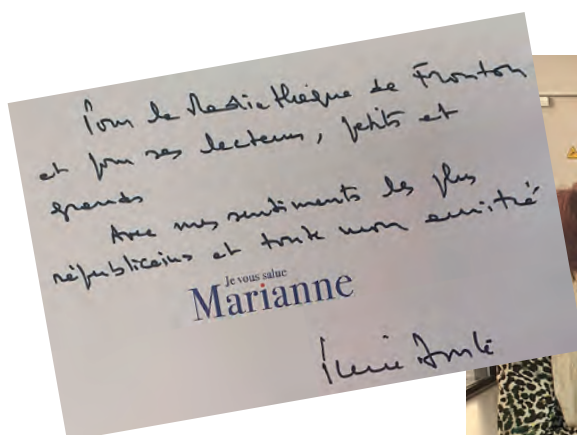 Pour la Médiathèque de Fronton
et pour ses lecteurs, petits et
grands
Avec mes sentiments les plus
républicains et toute mon amitié
Je vous salue
Marianne